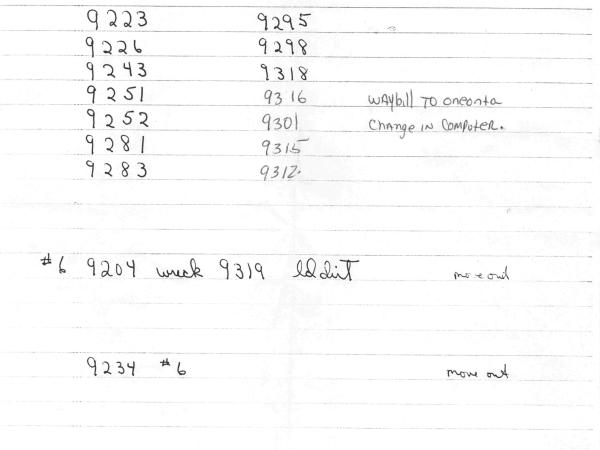 9223 9295
9226 9298
9243 9318
9251 9316 WAYbill TO oneonta
9252 9301 Change IN Computer.
9281 9315
9283 9312.
#6 9204 wreck 9319 ld dirt move out
9234 #6 move out